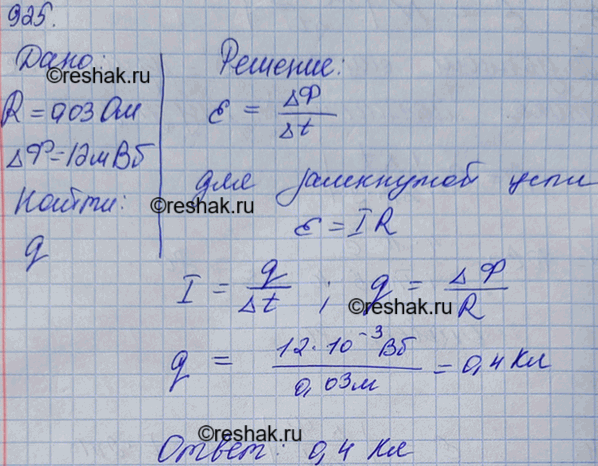 925.
Дано:
R = 0,03 Ом
ΔФ = 12 мВб
Найти:
q
Решение:
ε = ΔФ/Δt
для замкнутой цепи
ε = IR
I = q/Δt ; q = ΔФ/R
q = 12·10⁻³ Вб / 0,03 м = 0,4 Кл
Ответ: 0,4 Кл
©reshak.ru
©reshak.ru
©reshak.ru
©reshak.ru
©reshak.ru
©reshak.ru